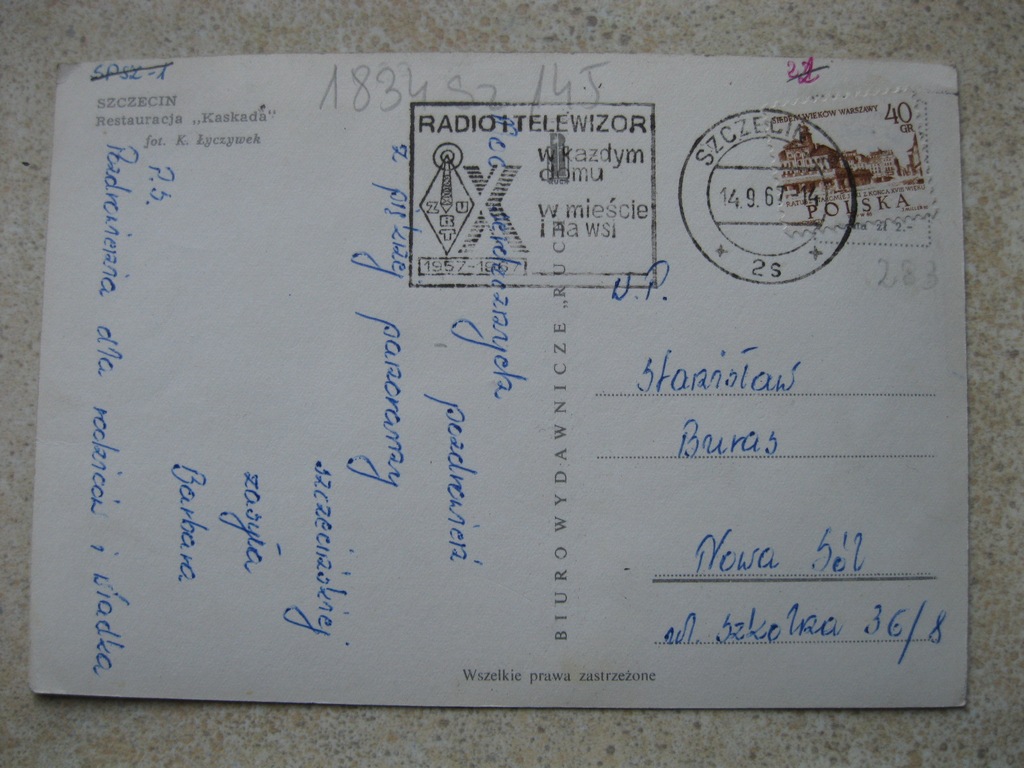 SPSZ-1
SZCZECIN
Restauracja „Kaskada"
fot. K. Łyczywek
1834 Sz /45
22
RADIO+TELEWIZOR
w każdym
domu
w mieście
i na wsi
X
ZURT
1957-1967
SZCZECIN
14.9.67-14
2s
SIEDEM WIEKÓW WARSZAWY
40
GR
POLSKA
zł 2.-
283
Moc serdecznych
pozdrowień
z pięknej panoramy
szczecińskiej
zasyła
Barbara
P.S.
Pozdrowienia dla rodziców i Władka
BIURO WYDAWNICZE „RUCH"
W.P.
Stanisław
Buras
Nowa Sól
ul. Szkolna 36/8
Wszelkie prawa zastrzeżone